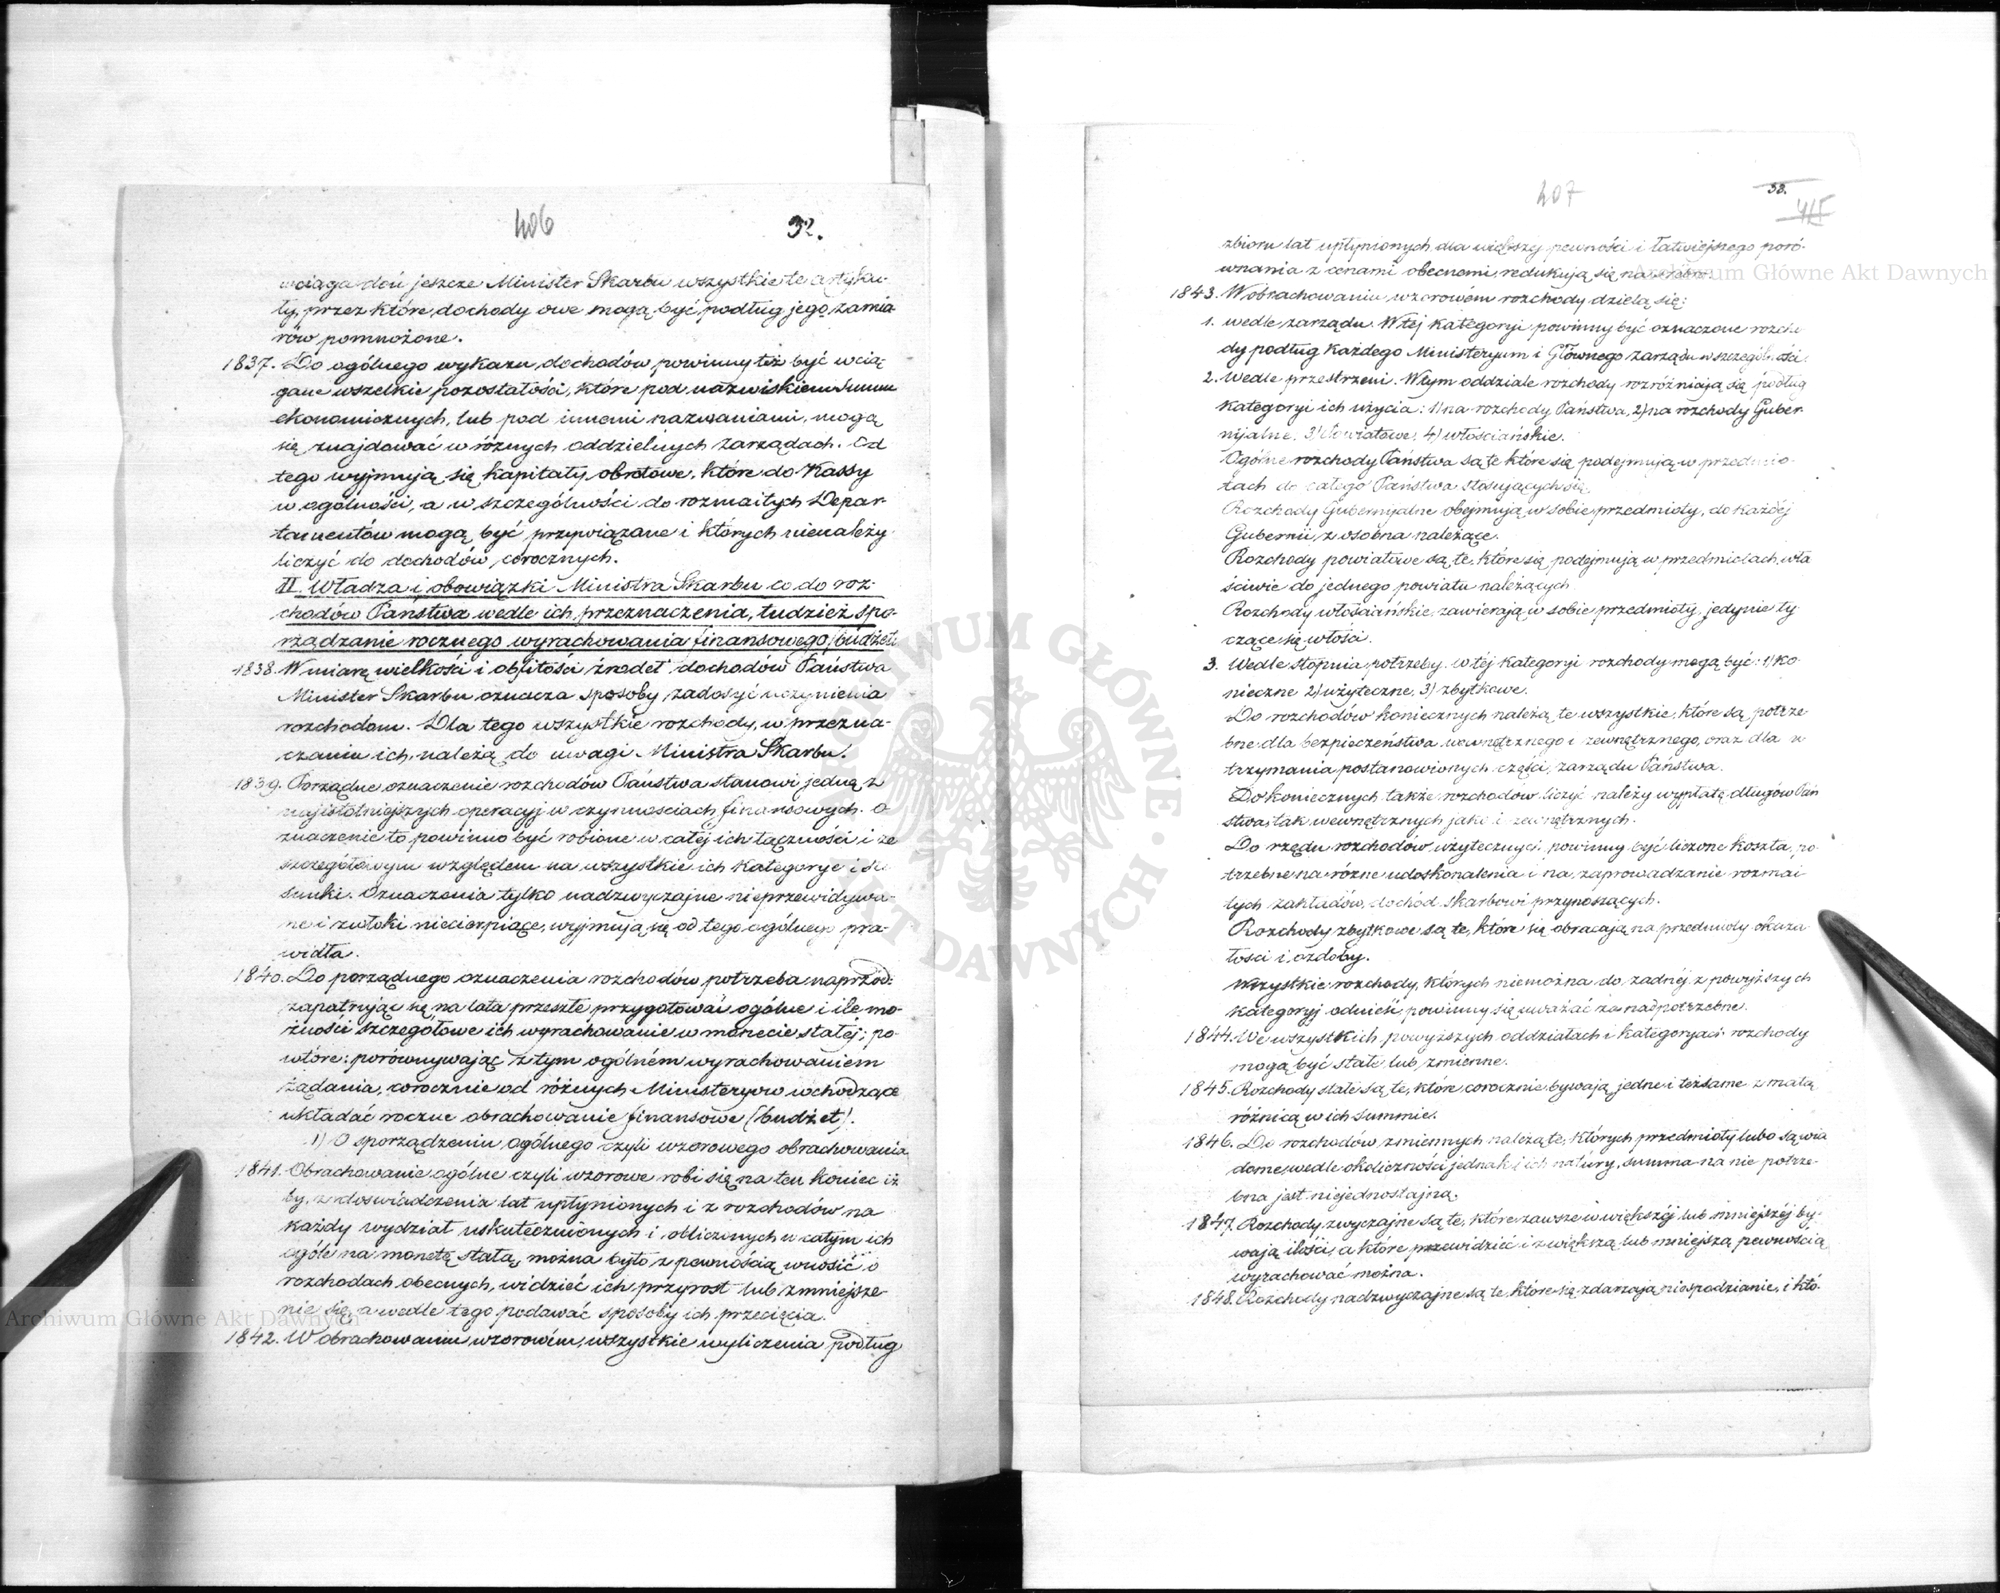 406
32.
wciąga doń jeszcze Minister Skarbu wszystkie te artyku-
ły, przez które, dochody owe mogą być podług jego zamia
rów pomnożone.
1837. Do ogólnego wykazu, dochodów powinny też być wcią
gane wszelkie pozostałości, które pod nazwiskiem summ
ekonomicznych, lub pod innemi nazwaniami, mogą
się znajdować w różnych oddzielnych zarządach. Od
tego wyjmują się kapitały obrotowe, które do Kassy
w ogólności, a w szczególności do rozmaitych Depar-
tamentów mogą być przywiązane i których nienależy
liczyć do dochodów corocznych.
II. Władza i obowiązki Ministra Skarbu co do roz-
chodów Państwa wedle ich przeznaczenia, tudzież spo-
rządzanie rocznego wyrachowania finansowego (budżet)
1838. W miarę wielkości i obfitości źrodeł dochodów Państwa
Minister Skarbu oznacza sposoby zadosyć uczynienia
rozchodom. Dla tego wszystkie rozchody, w przezna-
czaniu ich, należą do uwagi Ministra Skarbu.
1839. Porządne oznaczenie rozchodów Państwa stanowi jedną z
najistotniejszych operacyj w czynnościach finansowych. O-
znaczenie to powinno być robione w całej ich łączności i ze
szczegółowym względem na wszystkie ich Kategorye i sto
sunki. Oznaczenia tylko nadzwyczajne nieprzewidywa-
ne i zwłoki niecierpiące, wyjmują się od tego ogólnego pra-
widła.
1840. Do porządnego oznaczenia rozchodów potrzeba naprzód:
zapatrując się na lata przeszłe przygotować ogólne i ile mo-
żności szczegółowe ich wyrachowanie w monecie stałéj; po-
wtóre: porównywając z tym ogólném wyrachowaniem
żądania, corocznie od różnych Ministeryow wchodzące
układać roczne obrachowanie finansowe (budżet).
1) O sporządzeniu ogólnego czyli wzorowego obrachowania
1841. Obrachowanie ogólne czyli wzorowe robi się na ten koniec iż
by z doświadczenia lat upłynionych i z rozchodów na
każdy wydział uskutecznionych i obliczonych w całym ich
ogóle na monetę stałą, można było z pewnością wnosić o
rozchodach obecnych, widzieć ich przyrost lub zmniejsze-
nie się, a wedle tego podawać sposoby ich przecięcia.
1842. W obrachowaniu wzorowém, wszystkie wyliczenia podług
407
33.
415
zbioru lat upłynionych, dla większej pewności i łatwiejszego poró-
wnania z cenami obecnemi, redukują się na srebro.
1843. W obrachowaniu wzorowém rozchody dzielą się:
1. wedle zarządu. W tej kategoryi powinny być oznaczone rozcho
dy podług każdego Ministeryum i Głównego Zarządu w szczególności.
2. Wedle przestrzeni. W tym oddziale rozchody rozróżniają się podług
kategoryi ich użycia: 1) na rozchody Państwa, 2) na rozchody Guber-
nijalne, 3) Powiatowe, 4) włościańskie.
Ogólne rozchody Państwa są te które się podejmują w przedmio-
tach do całego Państwa stosujących się.
Rozchody Gubernijalne obejmują w sobie przedmioty, do każdej
Gubernii z osobna należące.
Rozchody powiatowe są te, które się podejmują w przedmiotach wła
ściwie do jednego powiatu należących.
Rozchody włościańskie, zawierają w sobie przedmioty, jedynie ty
czące się włości.
3. Wedle stopnia potrzeby. w téj kategoryi rozchody mogą być: 1) ko
nieczne 2) użyteczne, 3) zbytkowe.
Do rozchodów koniecznych należą te wszystkie, które są potrze-
bne dla bezpieczeństwa wewnętrznego i zewnętrznego, oraz dla u
trzymania postanowionych części, zarządu Państwa.
Do koniecznych także rozchodów liczyć należy wypłatę długów Pań
stwa, tak wewnętrznych jako i zewnętrznych.
Do rzędu rozchodów użytecznych powinny być liczone koszta, po-
trzebne na różne udoskonalenia i na zaprowadzanie rozmai
tych zakładów, dochód Skarbowi przynoszących.
Rozchody zbytkowe są te, które się obracają na przedmioty okaza
łości i ozdoby.
Wszystkie rozchody, których niemożna do żadnéj z powyższych
kategoryj odnieść, powinny się uważać za nadpotrzebne.
1844. We wszystkich powyższych oddziałach i kategoryach rozchody
mogą być stałe lub zmienne.
1845. Rozchody stałe są te, które corocznie bywają jedne i też same z małą
różnicą w ich summie.
1846. Do rozchodów zmiennych należą te, których przedmioty lubo są wia
dome, wedle okoliczności jednak i ich natury, summa na nie potrze-
bna jest niejednostajną.
1847. Rozchody zwyczajne są te, które zawsze w większéj lub mniejszéj by-
wają ilości, a które przewidzieć i z większą lub mniejszą pewnością
wyrachować można.
1848. Rozchody nadzwyczajne są te, które się zdarzają niespodzianie, i któ-
ARCHIWUM GŁÓWNE AKT DAWNYCH
Archiwum Główne Akt Dawnych
Archiwum Główne Akt Dawnych